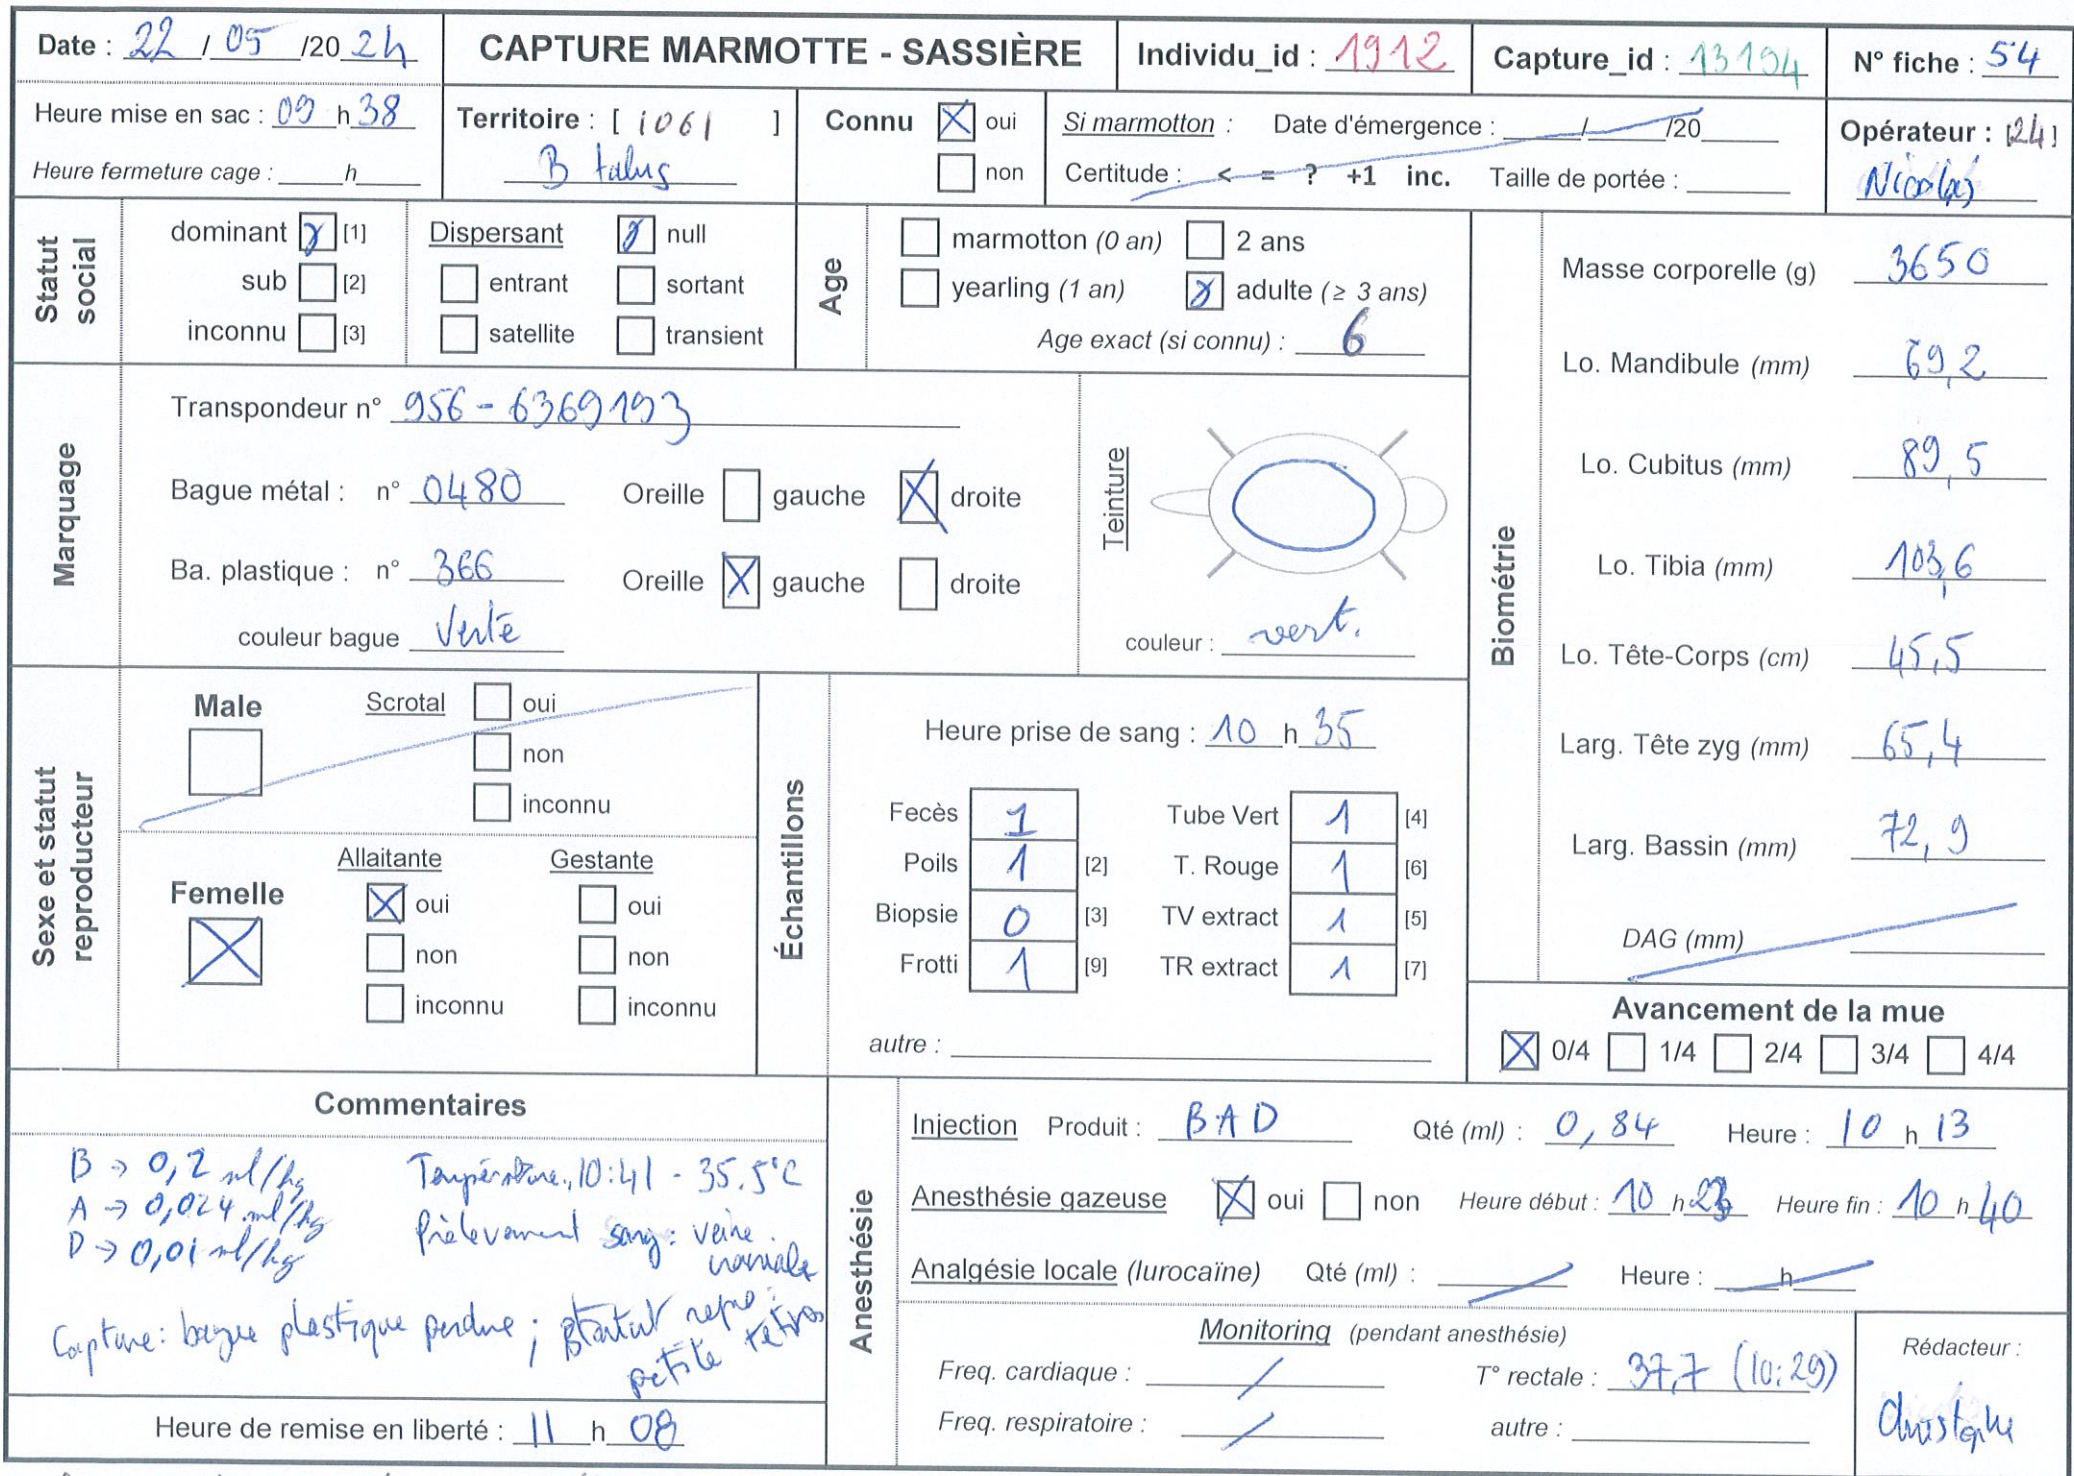 Date : 22 / 05 /20 24
CAPTURE MARMOTTE - SASSIÈRE
Individu_id : 1912
Capture_id : 13194
N° fiche : 54
Heure mise en sac : 09 h 38
Heure fermeture cage : ____h____
Territoire : [ 1061 ]
B talus
Connu oui
non
Si marmotton : Date d'émergence : ____/____/20____
Certitude : < = ? +1 inc. Taille de portée : ____
Opérateur : [24]
Nicolas
Statut social
dominant [1]
sub [2]
inconnu [3]
Dispersant null
entrant sortant
satellite transient
Age
marmotton (0 an) 2 ans
yearling (1 an) adulte (≥ 3 ans)
Age exact (si connu) : 6
Marquage
Transpondeur n° 956 - 6369193
Bague métal : n° 0480 Oreille gauche droite
Ba. plastique : n° 366 Oreille gauche droite
couleur bague Verte
Teinture
couleur : vert.
Biométrie
Masse corporelle (g) 3650
Lo. Mandibule (mm) 69,2
Lo. Cubitus (mm) 89,5
Lo. Tibia (mm) 103,6
Lo. Tête-Corps (cm) 45,5
Larg. Tête zyg (mm) 65,4
Larg. Bassin (mm) 72,9
DAG (mm)
Avancement de la mue
0/4 1/4 2/4 3/4 4/4
Sexe et statut reproducteur
Male
Scrotal oui
non
inconnu
Femelle
Allaitante
oui
non
inconnu
Gestante
oui
non
inconnu
Échantillons
Heure prise de sang : 10 h 35
Fecès 1 Tube Vert 1 [4]
Poils 1 [2] T. Rouge 1 [6]
Biopsie 0 [3] TV extract 1 [5]
Frotti 1 [9] TR extract 1 [7]
autre :
Commentaires
B → 0,2 ml/kg
A → 0,024 ml/kg
D → 0,01 ml/kg
Température 10:41 - 35.5°C
Prélevement sang : veine
Capture : bague plastique perdue ; statut repro :
petite tétines
Heure de remise en liberté : 11 h 08
Anesthésie
Injection Produit : BAD Qté (ml) : 0,84 Heure : 10 h 13
Anesthésie gazeuse oui non Heure début : 10 h 23 Heure fin : 10 h 40
Analgésie locale (lurocaïne) Qté (ml) : ____ Heure : ____h____
Monitoring (pendant anesthésie)
Freq. cardiaque : / T° rectale : 37,7 (10:29)
Freq. respiratoire : / autre :
Rédacteur :
Christophe